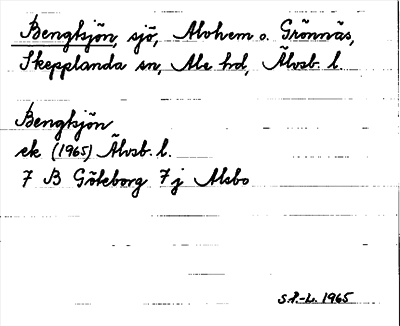 Bengtsjön, sjö, Alvhem o. Grönnäs,
Skepplanda sn, Ale hd, Älvsb. l.
Bengtsjön
ek (1965) Älvsb. l.
7 B Göteborg 7j Alsbo
S.P.-L. 1965